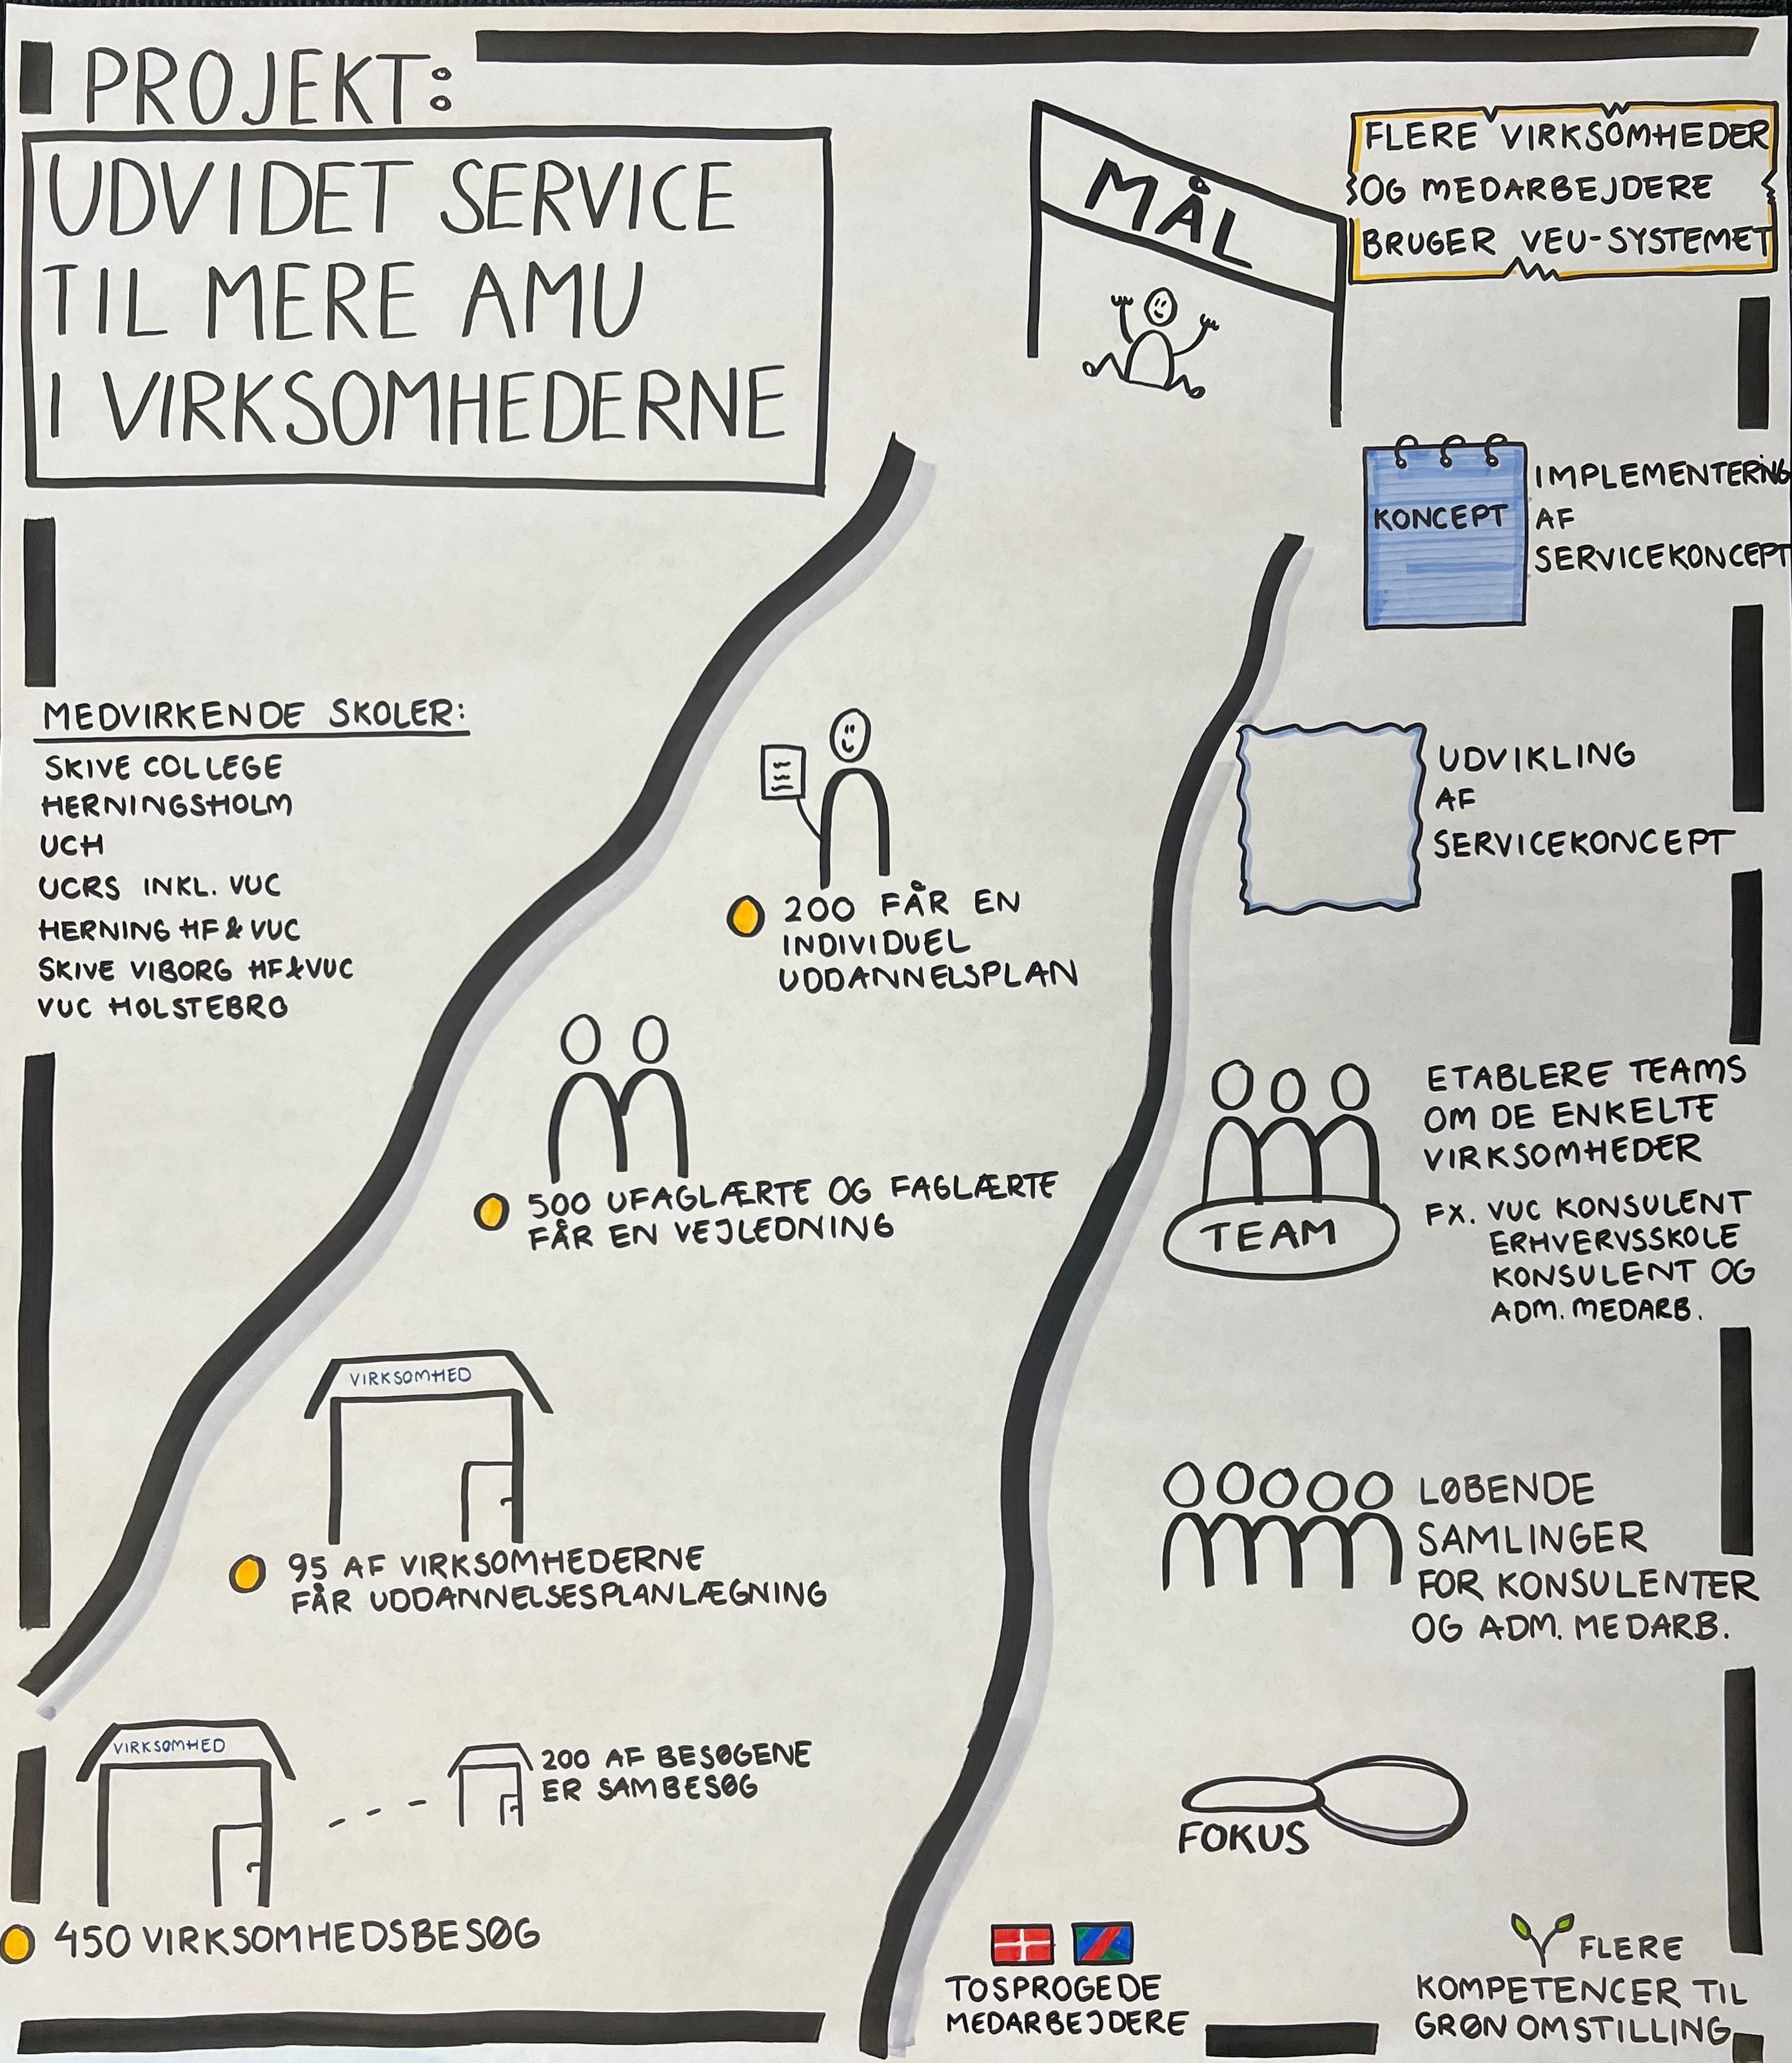 PROJEKT:
UDVIDET SERVICE
TIL MERE AMU
I VIRKSOMHEDERNE
MÅL
FLERE VIRKSOMHEDER
OG MEDARBEJDERE
BRUGER VEU-SYSTEMET
KONCEPT
IMPLEMENTERING
AF
SERVICEKONCEPT
MEDVIRKENDE SKOLER:
SKIVE COLLEGE
HERNINGSHOLM
UCH
UCRS INKL. VUC
HERNING HF & VUC
SKIVE VIBORG HF & VUC
VUC HOLSTEBRO
UDVIKLING
AF
SERVICEKONCEPT
200 FÅR EN
INDIVIDUEL
UDDANNELSPLAN
500 UFAGLÆRTE OG FAGLÆRTE
FÅR EN VEJLEDNING
ETABLERE TEAMS
OM DE ENKELTE
VIRKSOMHEDER
FX. VUC KONSULENT
ERHVERVSSKOLE
KONSULENT OG
ADM. MEDARB.
TEAM
VIRKSOMHED
95 AF VIRKSOMHEDERNE
FÅR UDDANNELSESPLANLÆGNING
LØBENDE
SAMLINGER
FOR KONSULENTER
OG ADM. MEDARB.
VIRKSOMHED
200 AF BESØGENE
ER SAMBESØG
450 VIRKSOMHEDSBESØG
FOKUS
TOSPROGEDE
MEDARBEJDERE
FLERE
KOMPETENCER TIL
GRØN OMSTILLING